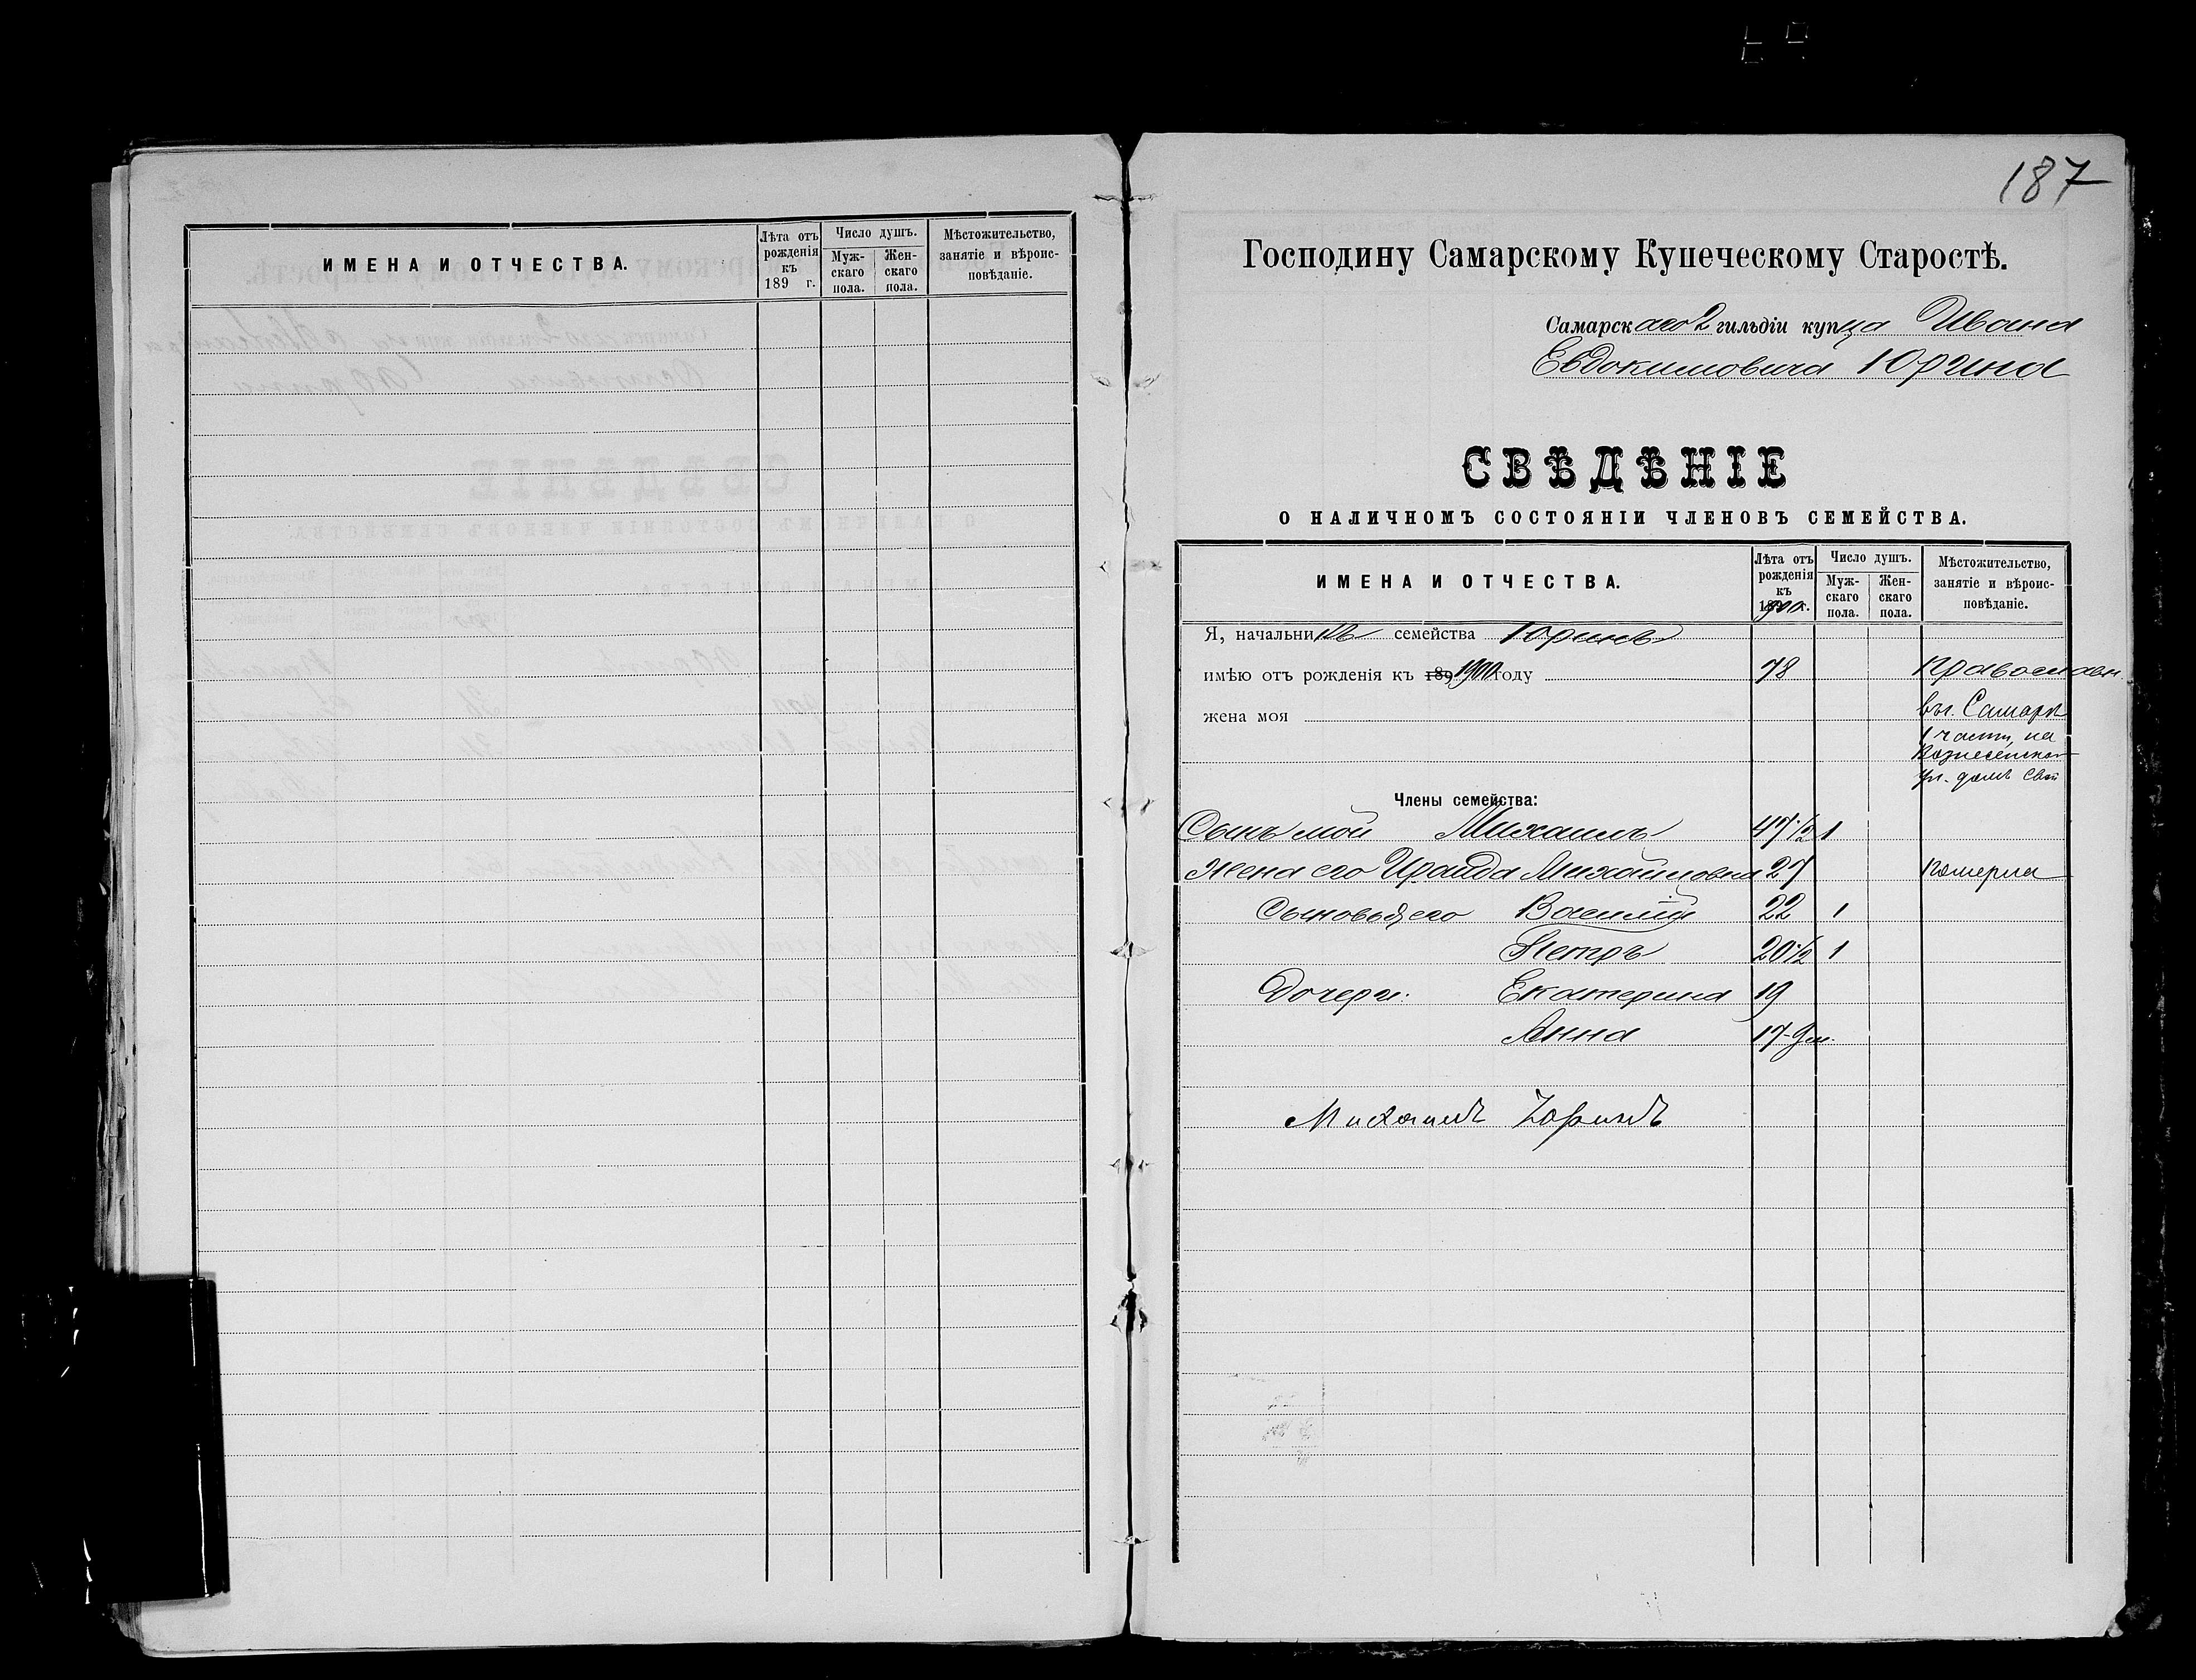 ИМЕНА И ОТЧЕСТВА.
Лѣта отъ рожденія къ 189 г.
Число душъ.
Мужскаго пола.
Женскаго пола.
Мѣстожительство, занятіе и вѣроисповѣданіе.
187
Господину Самарскому Купеческому Старостѣ.
Самарскаго 2 гильдіи купца Ивана
Евдокимовича Юрина
СВѢДѢНІЕ
О НАЛИЧНОМЪ СОСТОЯНІИ ЧЛЕНОВЪ СЕМЕЙСТВА.
ИМЕНА И ОТЧЕСТВА.
Лѣта отъ рожденія къ 1900 г.
Число душъ.
Мужскаго пола.
Женскаго пола.
Мѣстожительство, занятіе и вѣроисповѣданіе.
Я, начальникъ семейства Юринъ
имѣю отъ рожденія къ 189 1900 году 78 Православн.
жена моя въ г. Самарѣ
1 части, на
Вознесенской
ул. домъ свой
Члены семейства:
Сынъ мой Михаилъ 47 1/2 1
Жена его Ираида Михайловна 27 померла
Сыновья его Василій 22 1
Петръ 20 1/2 1
Дочери: Екатерина 19
Анна 17-9 м.
Михаилъ Юринъ